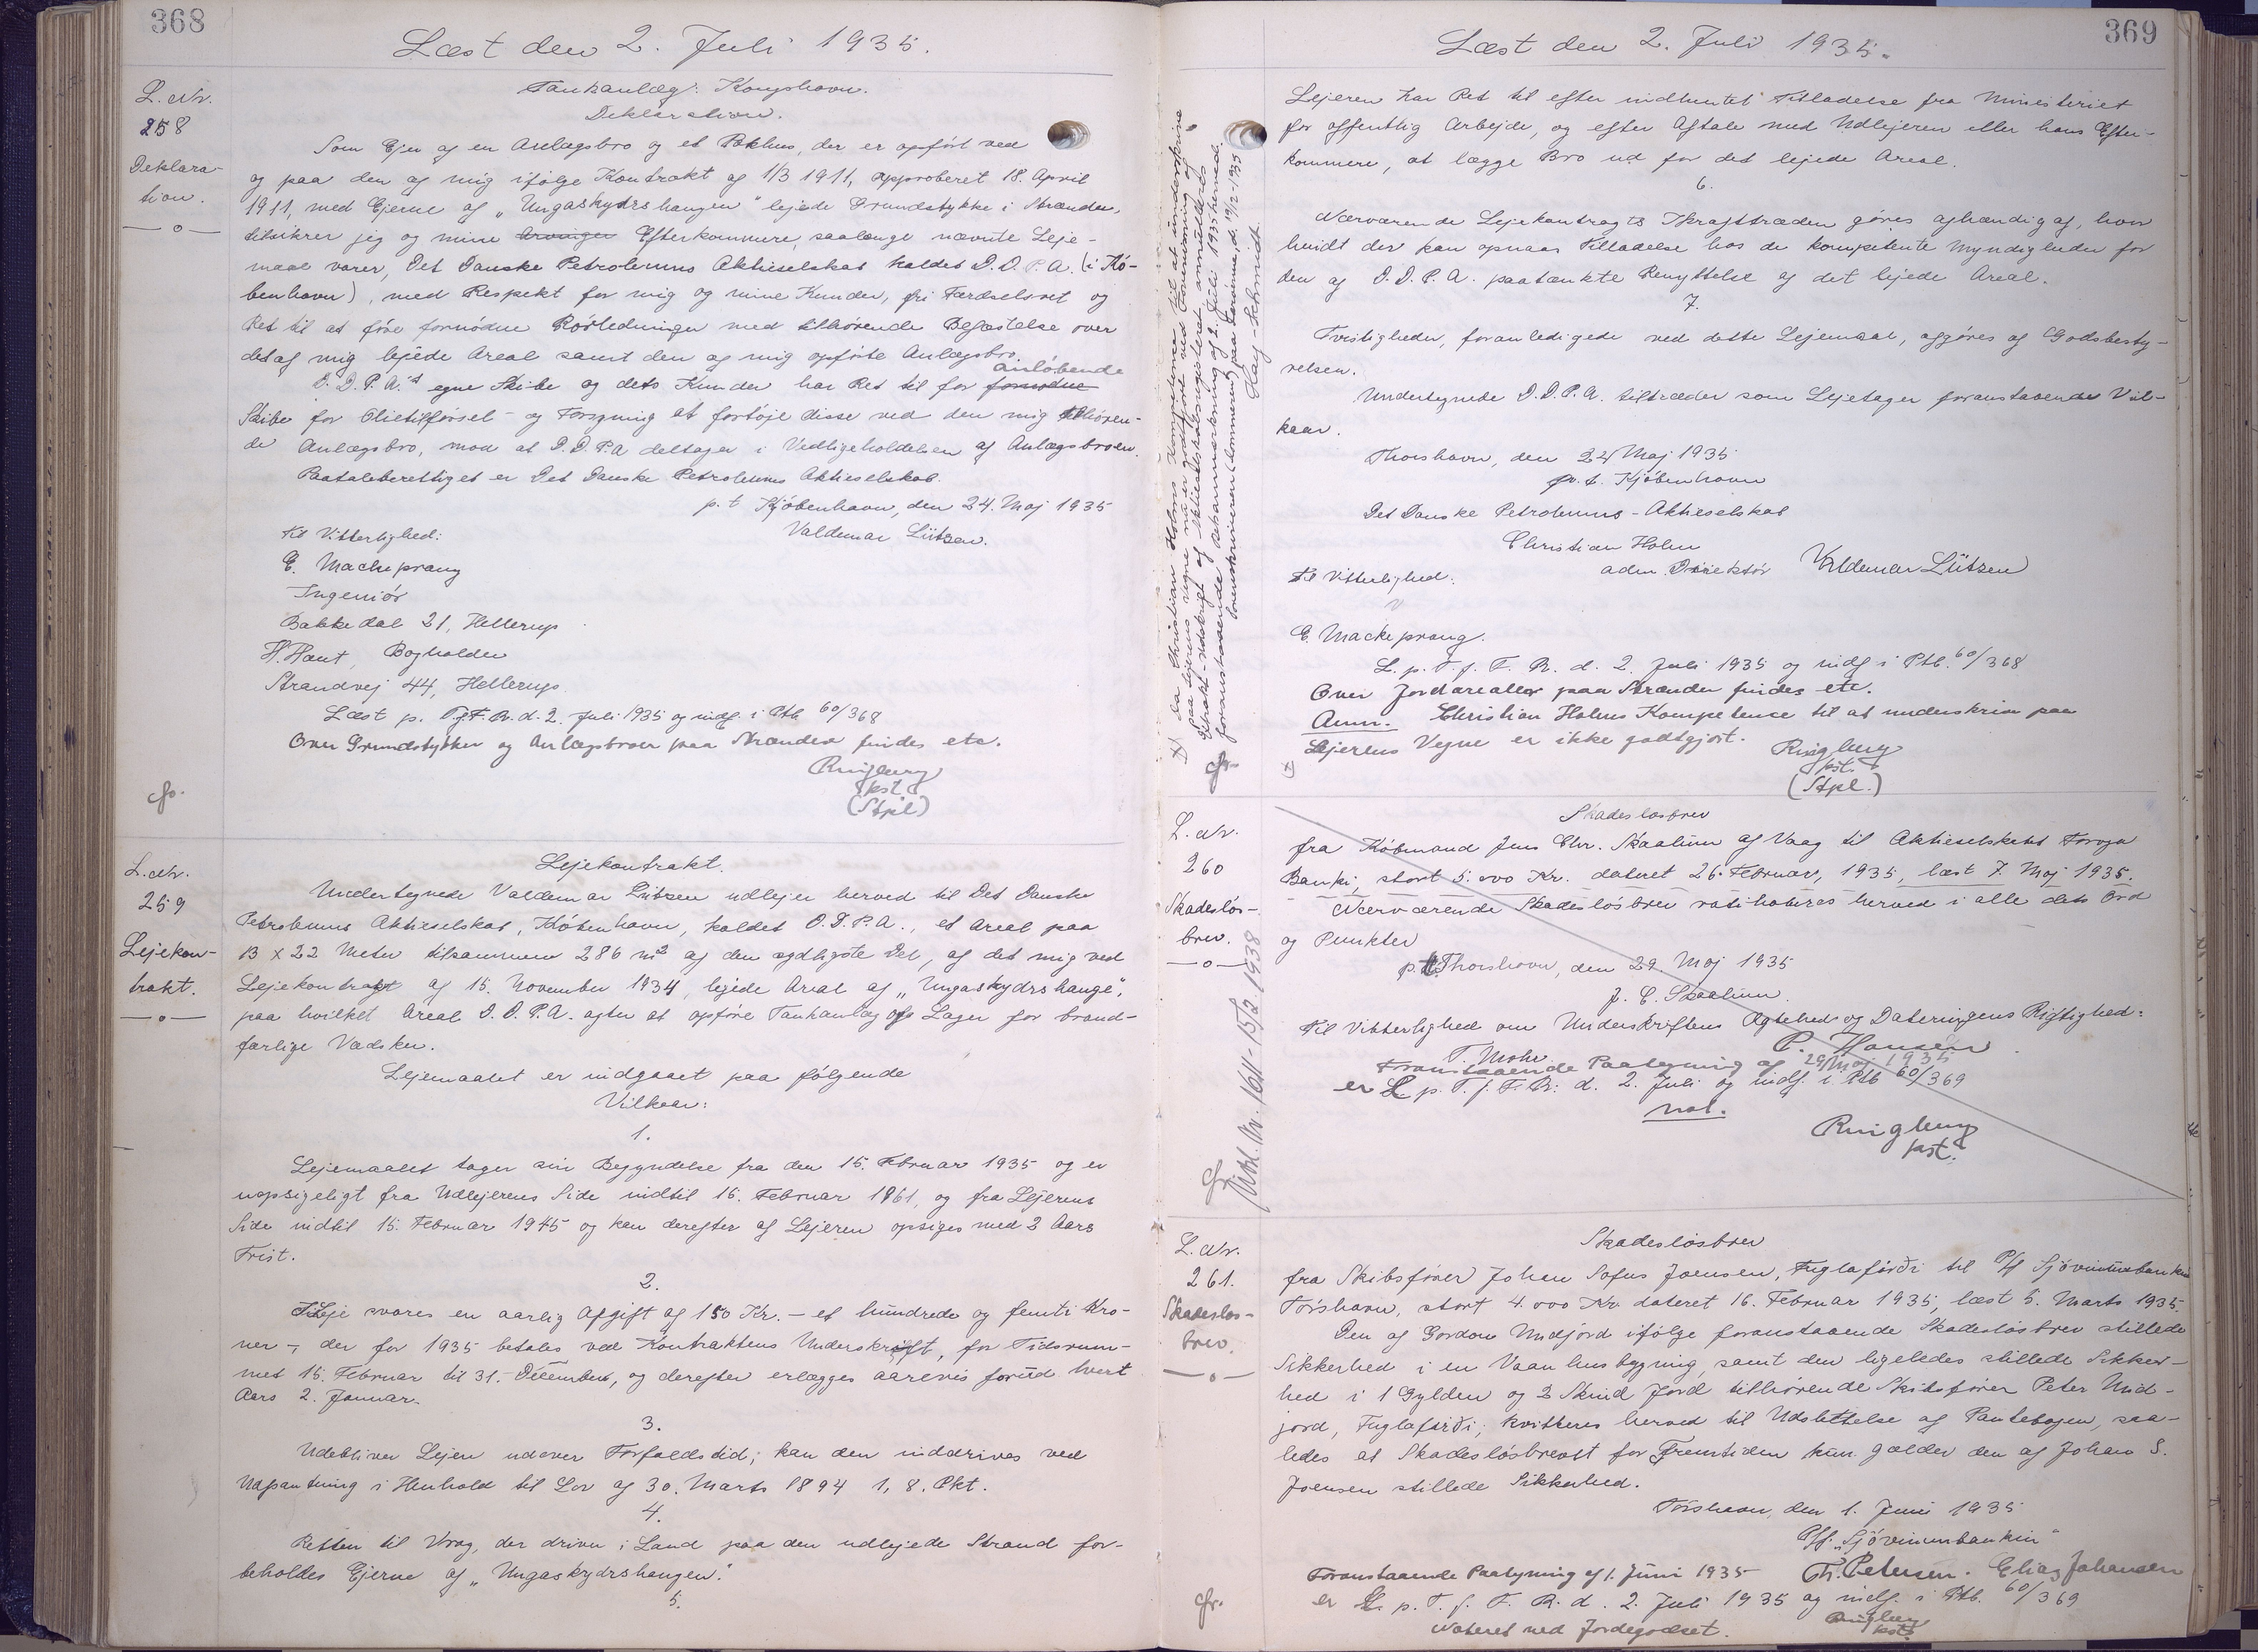 368
Læst den 2. Juli 1935.
L. Nr.
258
Deklara-
tion.
Tankanlæg: Kongshavn.
Deklaration.
Som Ejer af en Anlægsbro og et Pakhus, der er opført ved
og paa den af mig ifølge Kontrakt af 1/3 1911, approberet 18. April
1911, med Ejerne af „Ungaskydrshangen" lejede Grundstykke i Strænder,
tilsikrer jeg og mine Arvinger Efterkommere, saalænge nævnte Leje-
maal varer, Det Danske Petroleums Aktieselskab kaldet D.D.P.A. (i Kø-
benhavn), med Respekt for mig og mine Kunder, fri Færdselsret og
Ret til at føre fornødne Rørledninger med tilhørende Befæstelse over
det af mig lejede Areal samt den af mig opførte Anlægsbro.
D.D.P.A.'s egne Skibe og dets Kunder har Ret til for fornødne anløbende
Skibe for Olietilførsel- og Forsyning at fortøje disse ved den mig tilhøren-
de Anlægsbro, mod at D.D.P.A deltager i Vedligeholdelsen af Anlægsbroen.
Paataleberettiget er Det Danske Petroleums Aktieselskab.
p.t. Kjøbenhavn, den 24. Maj 1935
Valdemar Lützen.
Til Vitterlighed:
E. Mackeprang
Ingeniør
Bakkedal 21, Hellerup
H. Hant, Bogholder
Strandvej 44, Hellerup.
Læst p. T.f.F.R. d. 2. Juli 1935 og indf. i Ptb. 60/368
Over Grundstykker og Anlægsbroer paa Strænder findes etc.
Ringberg
kst.
(Stpl)
cfr.
L. Nr.
259
Lejekon-
trakt.
Lejekontrakt.
Undertegnede Valdemar Lützen udlejer herved til Det Danske
Petroleums Aktieselskab, København, kaldet D.D.P.A., et Areal paa
13 x 22 Meter tilsammen 286 m² af den sydligste Del, af det mig ved
Lejekontragt af 15. November 1934 lejede Areal af „Ungaskydrshange",
paa hvilket Areal D.D.P.A. agter at opføre Tankanlæg og Lager for brand-
farlige Vædsker.
Lejemaalet er indgaaet paa følgende
Vilkaar:
1.
Lejemaalet tager sin Begyndelse fra den 15. Februar 1935 og er
uopsigeligt fra Udlejerens Side indtil 15. Februar 1961, og fra Lejerens
Side indtil 15. Februar 1945 og kan derefter af Lejeren opsiges med 2 Aars
Frist.
2.
I Leje svares en aarlig Afgift af 150 Kr. – et hundrede og femti Kro-
ner –, der for 1935 betales ved Kontraktens Underskrift, for Tidsrum-
met 15. Februar til 31. December, og derefter erlægges aarlvis forud hvert
Aars 2. Januar.
3.
Udebliver Lejen udover Forfaldstid; kan den inddrives ved
Udpantning i Henhold til Lov af 30. Marts 1894 1, 8. Pkt.
4.
Retten til Vrag, der driver i Land paa den udlejede Strand for-
beholdes Ejerne af „Ungaskydrshangen".
5.
369
Læst den 2. Juli 1935.
Lejeren har Ret til efter indhentet Tilladelse fra Ministeriet
for offentlig Arbejde, og efter Aftale med Udlejeren eller hans Efter-
kommere, at lægge Bro ud for det lejede Areal.
6.
Nærværende Lejekontragts Ikrafttræden gøres afhændig af, hvor
hvidt der kan opnaas Tilladelse hos de kompetente Myndigheder for
den af D.D.P.A. paatænkte Benyttelse af det lejede Areal.
7.
Tvistigheder, foranledigede ved dette Lejemaal, afgøres af Godsbesty-
relsen.
Undertegnede D.D.P.A. tiltræder som Lejetager foranstaaende Vil-
kaar.
Thorshavn, den 24 Maj 1935
p.t. Kjøbenhavn
Det Danske Petroleums-Aktieselskab
Christian Holm
adm. Direktør Valdemar Lützen
Til Vitterlighed:
E. Mackeprang.
L. p. T. f. F. R. d. 2. Juli 1935 og indf. i Ptb. 60/368
Over Jordarealer paa Strænder findes etc.
Anm. Christian Holms Kompetence til at underskrive paa
Lejerens Vegne er ikke godtgjort.
Ringberg
kst.
(Stpl.)
x) Da Christian Holms Kompetence til at underskrive
paa Lejerens vegne nu er godtgjort ved
foranstaaende Anmærkning af 2. Juli 1935 herved.
Sorenskriveren paa Færøerne, d. 19/12-1935
cfr.
L. Nr.
260
Skadesløs-
brev.
Skadesløsbrev
fra Købmand Jens Chr. Skaalum af Vaag til Aktieselskabet Føroya
Banki, stort 5.000 Kr. dateret 26. Februar, 1935, læst 7. Maj 1935.
Nærværende Skadesløsbrev ratihaberes herved i alle dets Ord
og Punkter
p.t. Thorshavn, den 29. Maj 1935
J. C. Skaalum.
Til Vitterlighed om Underskriftens Ægthed og Dateringens Rigtighed:
P. Hansen
T. Mohr.
Foranstaaende Paategning af 29/Maj 1935
er L. p. T. f. F. R. d. 2. Juli og indf. i Ptb 60/369
not.
Ringberg
kst.
cfr.
Udsl. Nr. 1611-15/2 1938
L. Nr.
261.
Skadesløs-
brev.
Skadesløsbrev
fra Skibsfører Johan Sofus Joensen, Fuglafirði til P/f Sjóvinnubankin
Tórshavn, stort 4.000 Kr. dateret 16. Februar 1935, læst 5. Marts 1935.
Den af Gordon Midjord ifølge foranstaaende Skadesløsbrev stillede
Sikkerhed i en Vaanhusbygning, samt den ligeledes stillede Sikker-
hed i 1 Gylden og 2 Skind Jord tilhørende Skibsfører Peter Mid-
jord, Fuglafirði, kvitteres herved til Udslettelse af Pantebogen, saa-
ledes at Skadesløsbrevet for Fremtiden kun gælder den af Johan S.
Joensen stillede Sikkerhed.
Tórshavn, den 1. Juni 1935
P/f. „Sjóvinnubankin"
Foranstaaende Paategning af 1. Juni 1935 Th. Petersen. Elias Johansen
er L. p. T. f. F. R. d. 2. Juli 1935 og indf. i Ptb. 60/369
Noteret ved Jordegodset.
Ringberg
kst.
cfr.